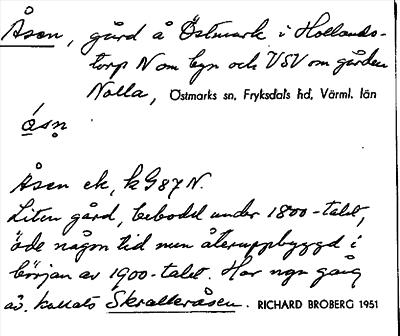 Åsen, gård å Östmark i Hollands-
torp N om byn och VSV om gården
Nolla, Östmarks sn, Fryksdals hd, Värml. län
ǻsn̥
Åsen ek, k G87 N.
Liten gård, bebodd under 1800-talet,
öde någon tid men återuppbyggd i
början av 1900-talet. Har ngn gång
äv. kallats Skralleråsen. RICHARD BROBERG 1951